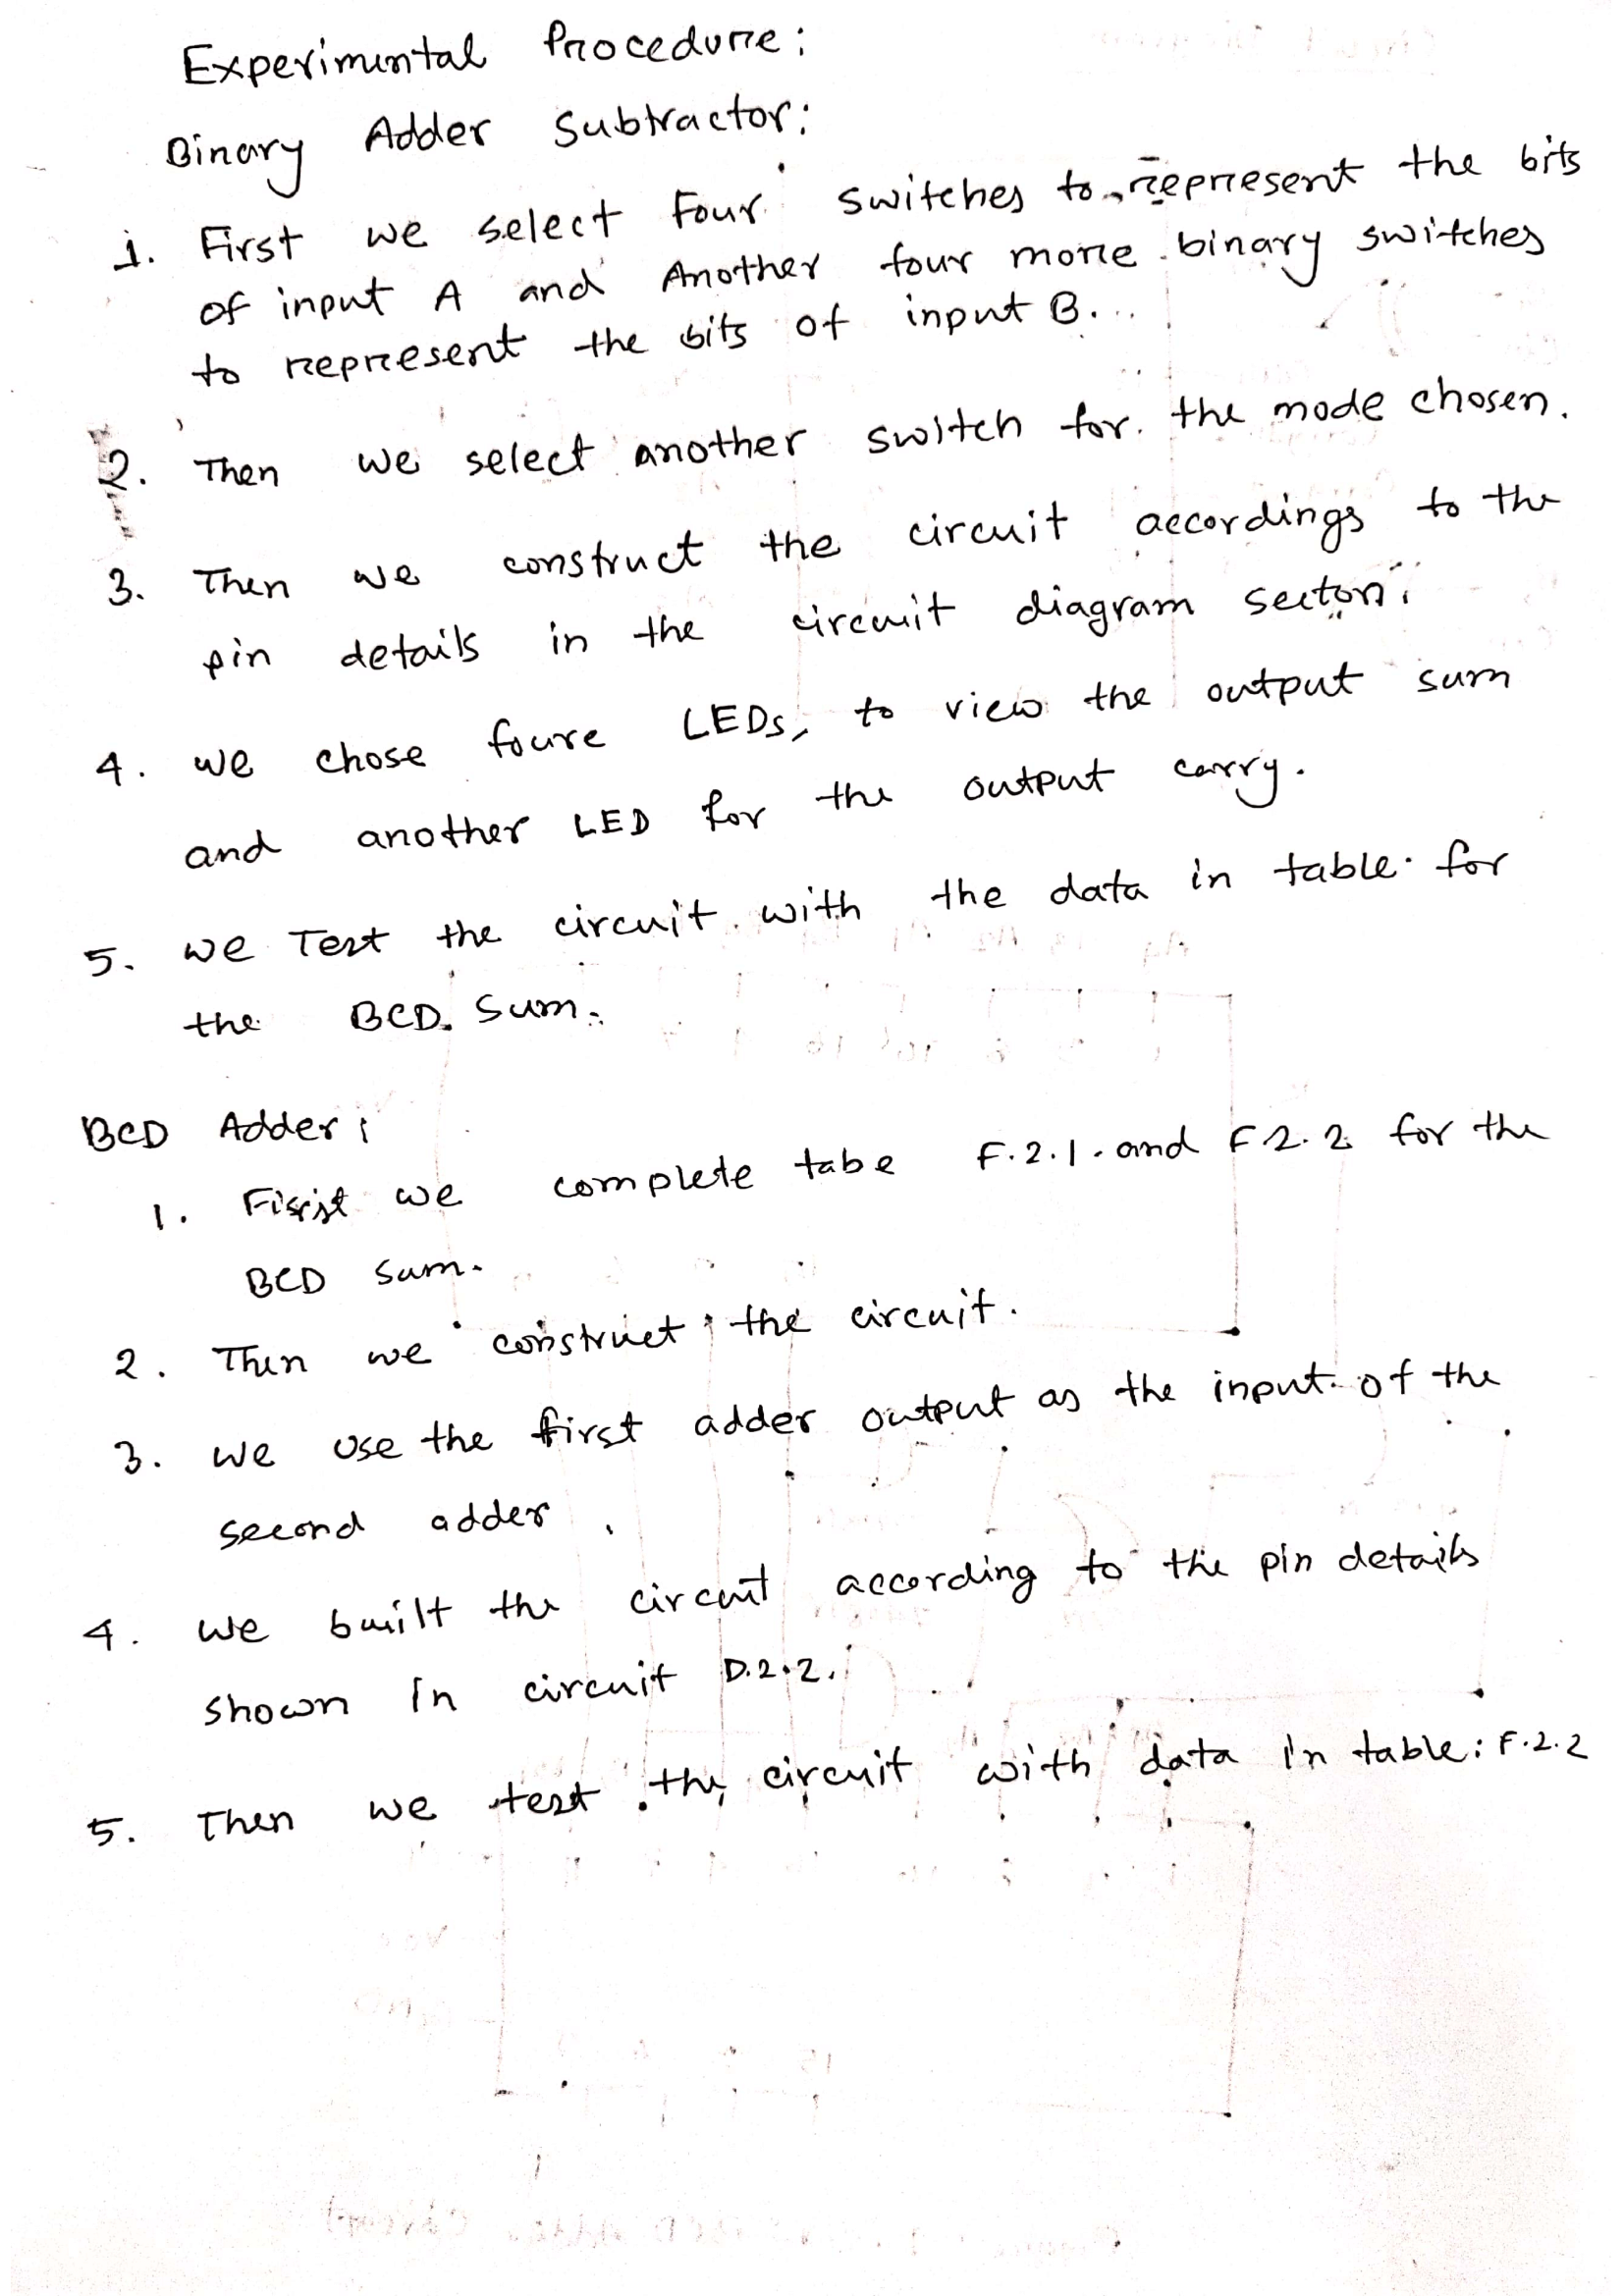 Experimental Procedure:
Binary Adder Subtractor:
1. First we select Four switches to represent the bits
of input A and Another four more binary switches
to represent the bits of input B.
2. Then we select another switch for the mode chosen.
3. Then we construct the circuit accordings to the
pin details in the circuit diagram secton.
4. we chose foure LEDs, to view the output sum
and another LED for the output carry.
5. we Test the circuit with the data in table for
the BCD Sum.
BCD Adder:
1. First we complete tabe F.2.1. and F2.2 for the
BCD sum.
2. Then we construct the circuit.
3. we use the first adder output as the input of the
second adder.
4. we built the circuit according to the pin details
shown in circuit D.2.2.
5. Then we test the circuit with data in table: F.2.2